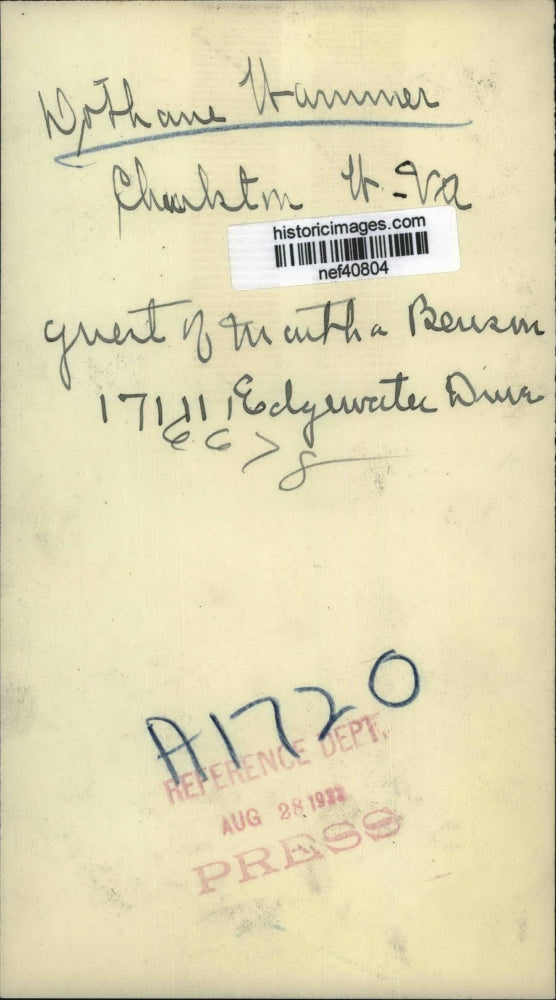 Dothane Hammer
Charlston W-Va
historicimages.com
nef40804
guest of Martha Benson
17111 Edgewater Drive
667
8
A1720
REFERENCE DEPT.
AUG 28 1933
PRESS